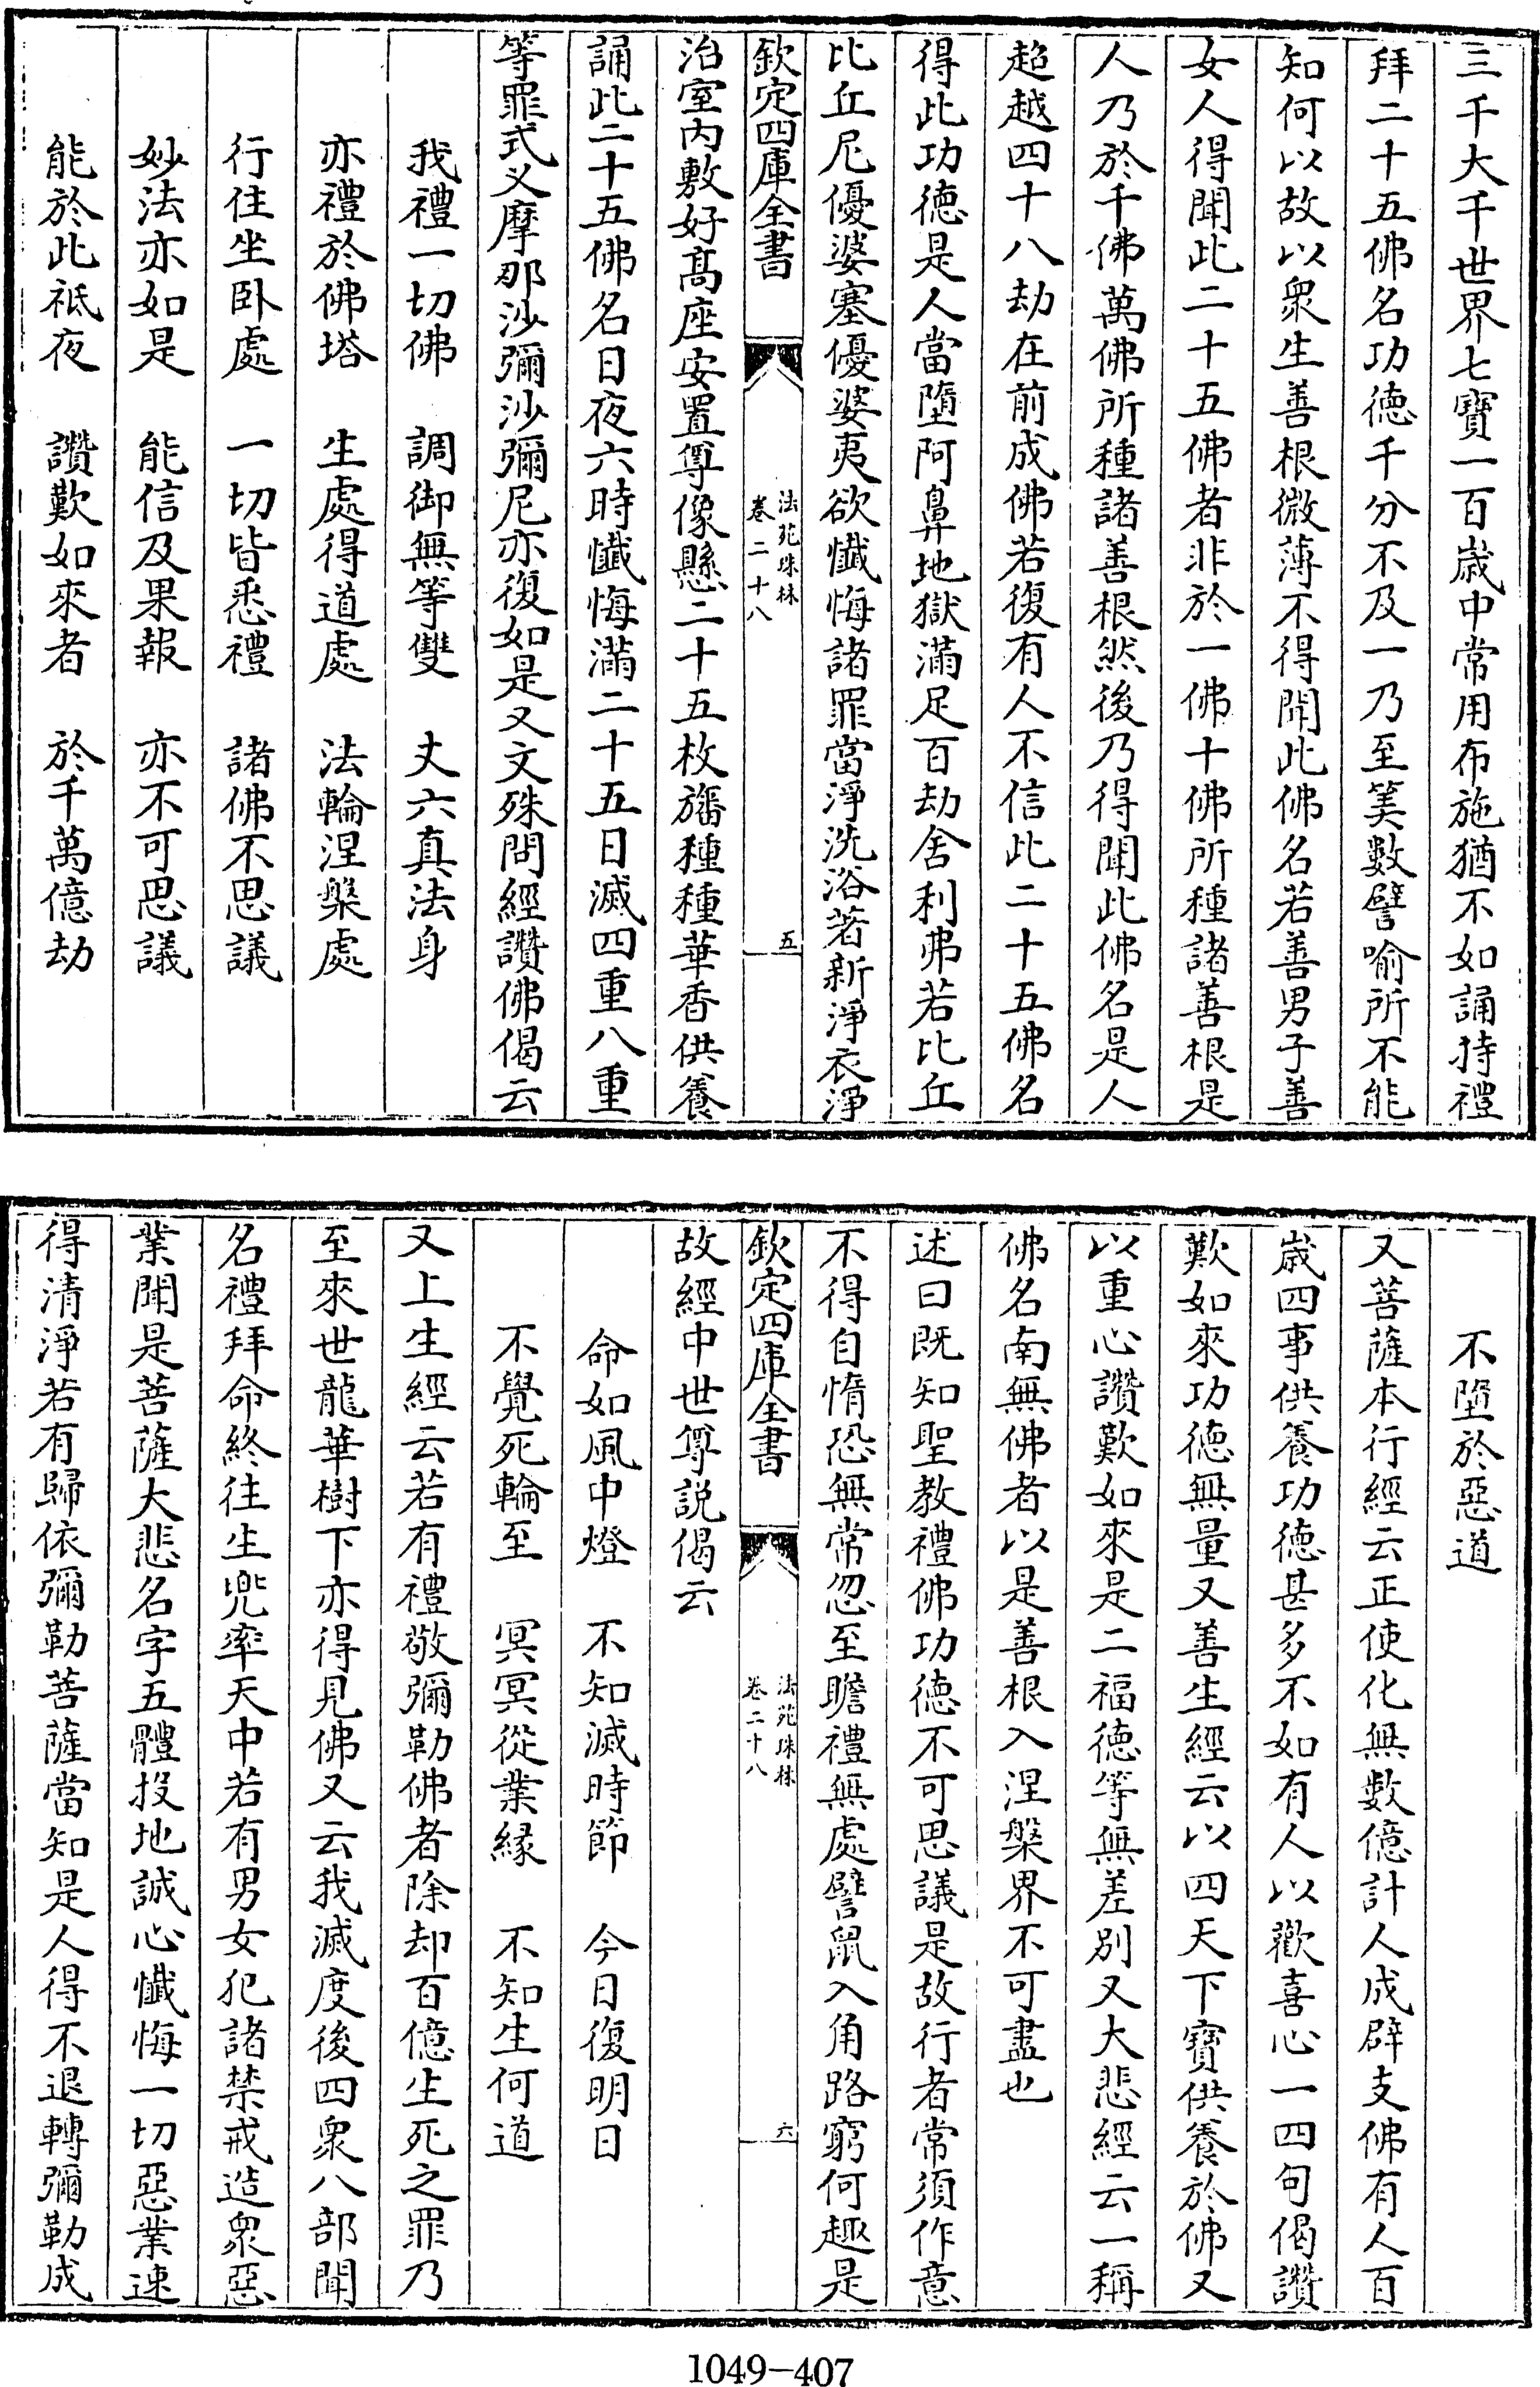 三千大千世界七寶一百歳中常用布施猶不如誦持禮
拜二十五佛名功徳千分不及一乃至筭數譬喻所不能
知何以故以衆生善根微薄不得聞此佛名若善男子善
女人得聞此二十五佛者非於一佛十佛所種諸善根是
人乃於千佛萬佛所種諸善根然後乃得聞此佛名是人
超越四十八劫在前成佛若復有人不信此二十五佛名
得此功徳是人當墮阿鼻地獄滿足百劫舍利弗若比丘
比丘尼優婆塞優婆夷欲懺悔諸罪當淨洗浴著新淨衣淨
欽定四庫全書
法苑珠林
卷二十八
五
治室内敷好髙座安置尊像懸二十五枚旛種種華香供養
誦此二十五佛名日夜六時懺悔滿二十五日滅四重八重
等罪式义摩那沙彌沙彌尼亦復如是又文殊問經讚佛偈云
我禮一切佛　調御無等雙　丈六真法身
亦禮於佛塔　生處得道處　法輪涅槃處
行住坐卧處　一切皆悉禮　諸佛不思議
妙法亦如是　能信及果報　亦不可思議
能於此祗夜　讚歎如來者　於千萬億劫
不墮於惡道
又菩薩本行經云正使化無數億計人成辟支佛有人百
歳四事供養功徳甚多不如有人以歡喜心一四句偈讚
歎如來功徳無量又善生經云以四天下寶供養於佛又
以重心讚歎如來是二福徳等無差別又大悲經云一稱
佛名南無佛者以是善根入涅槃界不可盡也
述曰既知聖教禮佛功徳不可思議是故行者常須作意
不得自惰恐無常忽至瞻禮無處譬鼠入角路窮何趣是
欽定四庫全書
法苑珠林
卷二十八
六
故經中世尊説偈云
命如風中燈　不知滅時節　今日復明日
不覺死輪至　冥冥從業縁　不知生何道
又上生經云若有禮敬彌勒佛者除却百億生死之罪乃
至來世龍華樹下亦得見佛又云我滅度後四衆八部聞
名禮拜命終往生兜率天中若有男女犯諸禁戒造衆惡
業聞是菩薩大悲名字五體投地誠心懺悔一切惡業速
得清淨若有歸依彌勒菩薩當知是人得不退轉彌勒成
1049-407